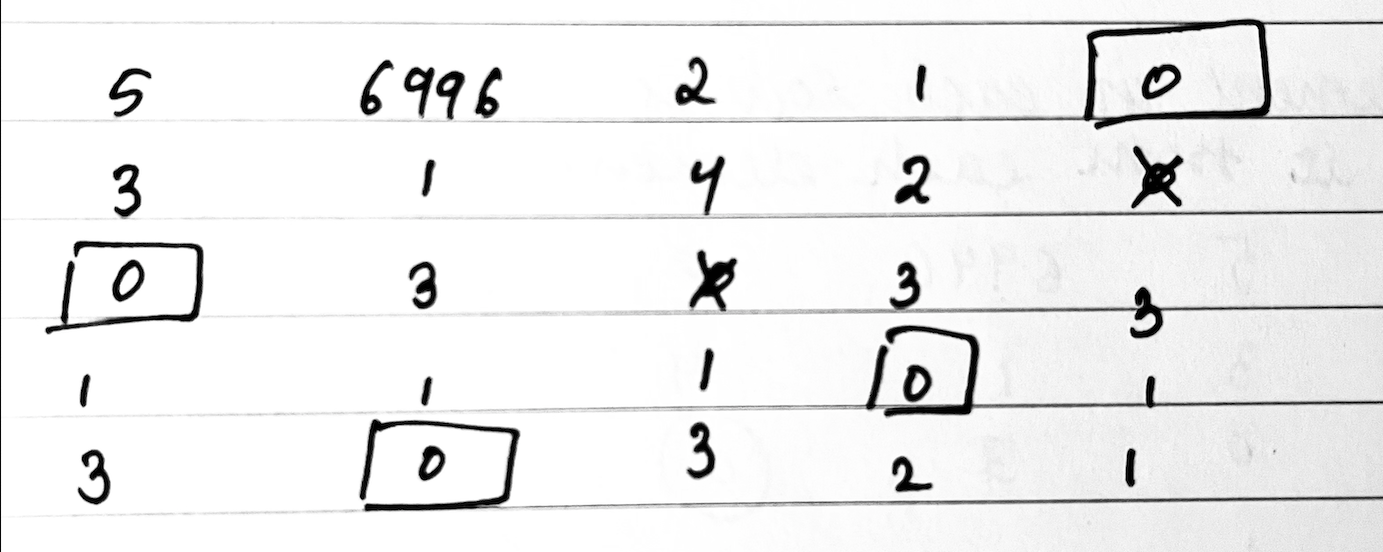 5 6996 2 1 0
3 1 4 2 0
0 3 0 3 3
1 1 1 0 1
3 0 3 2 1